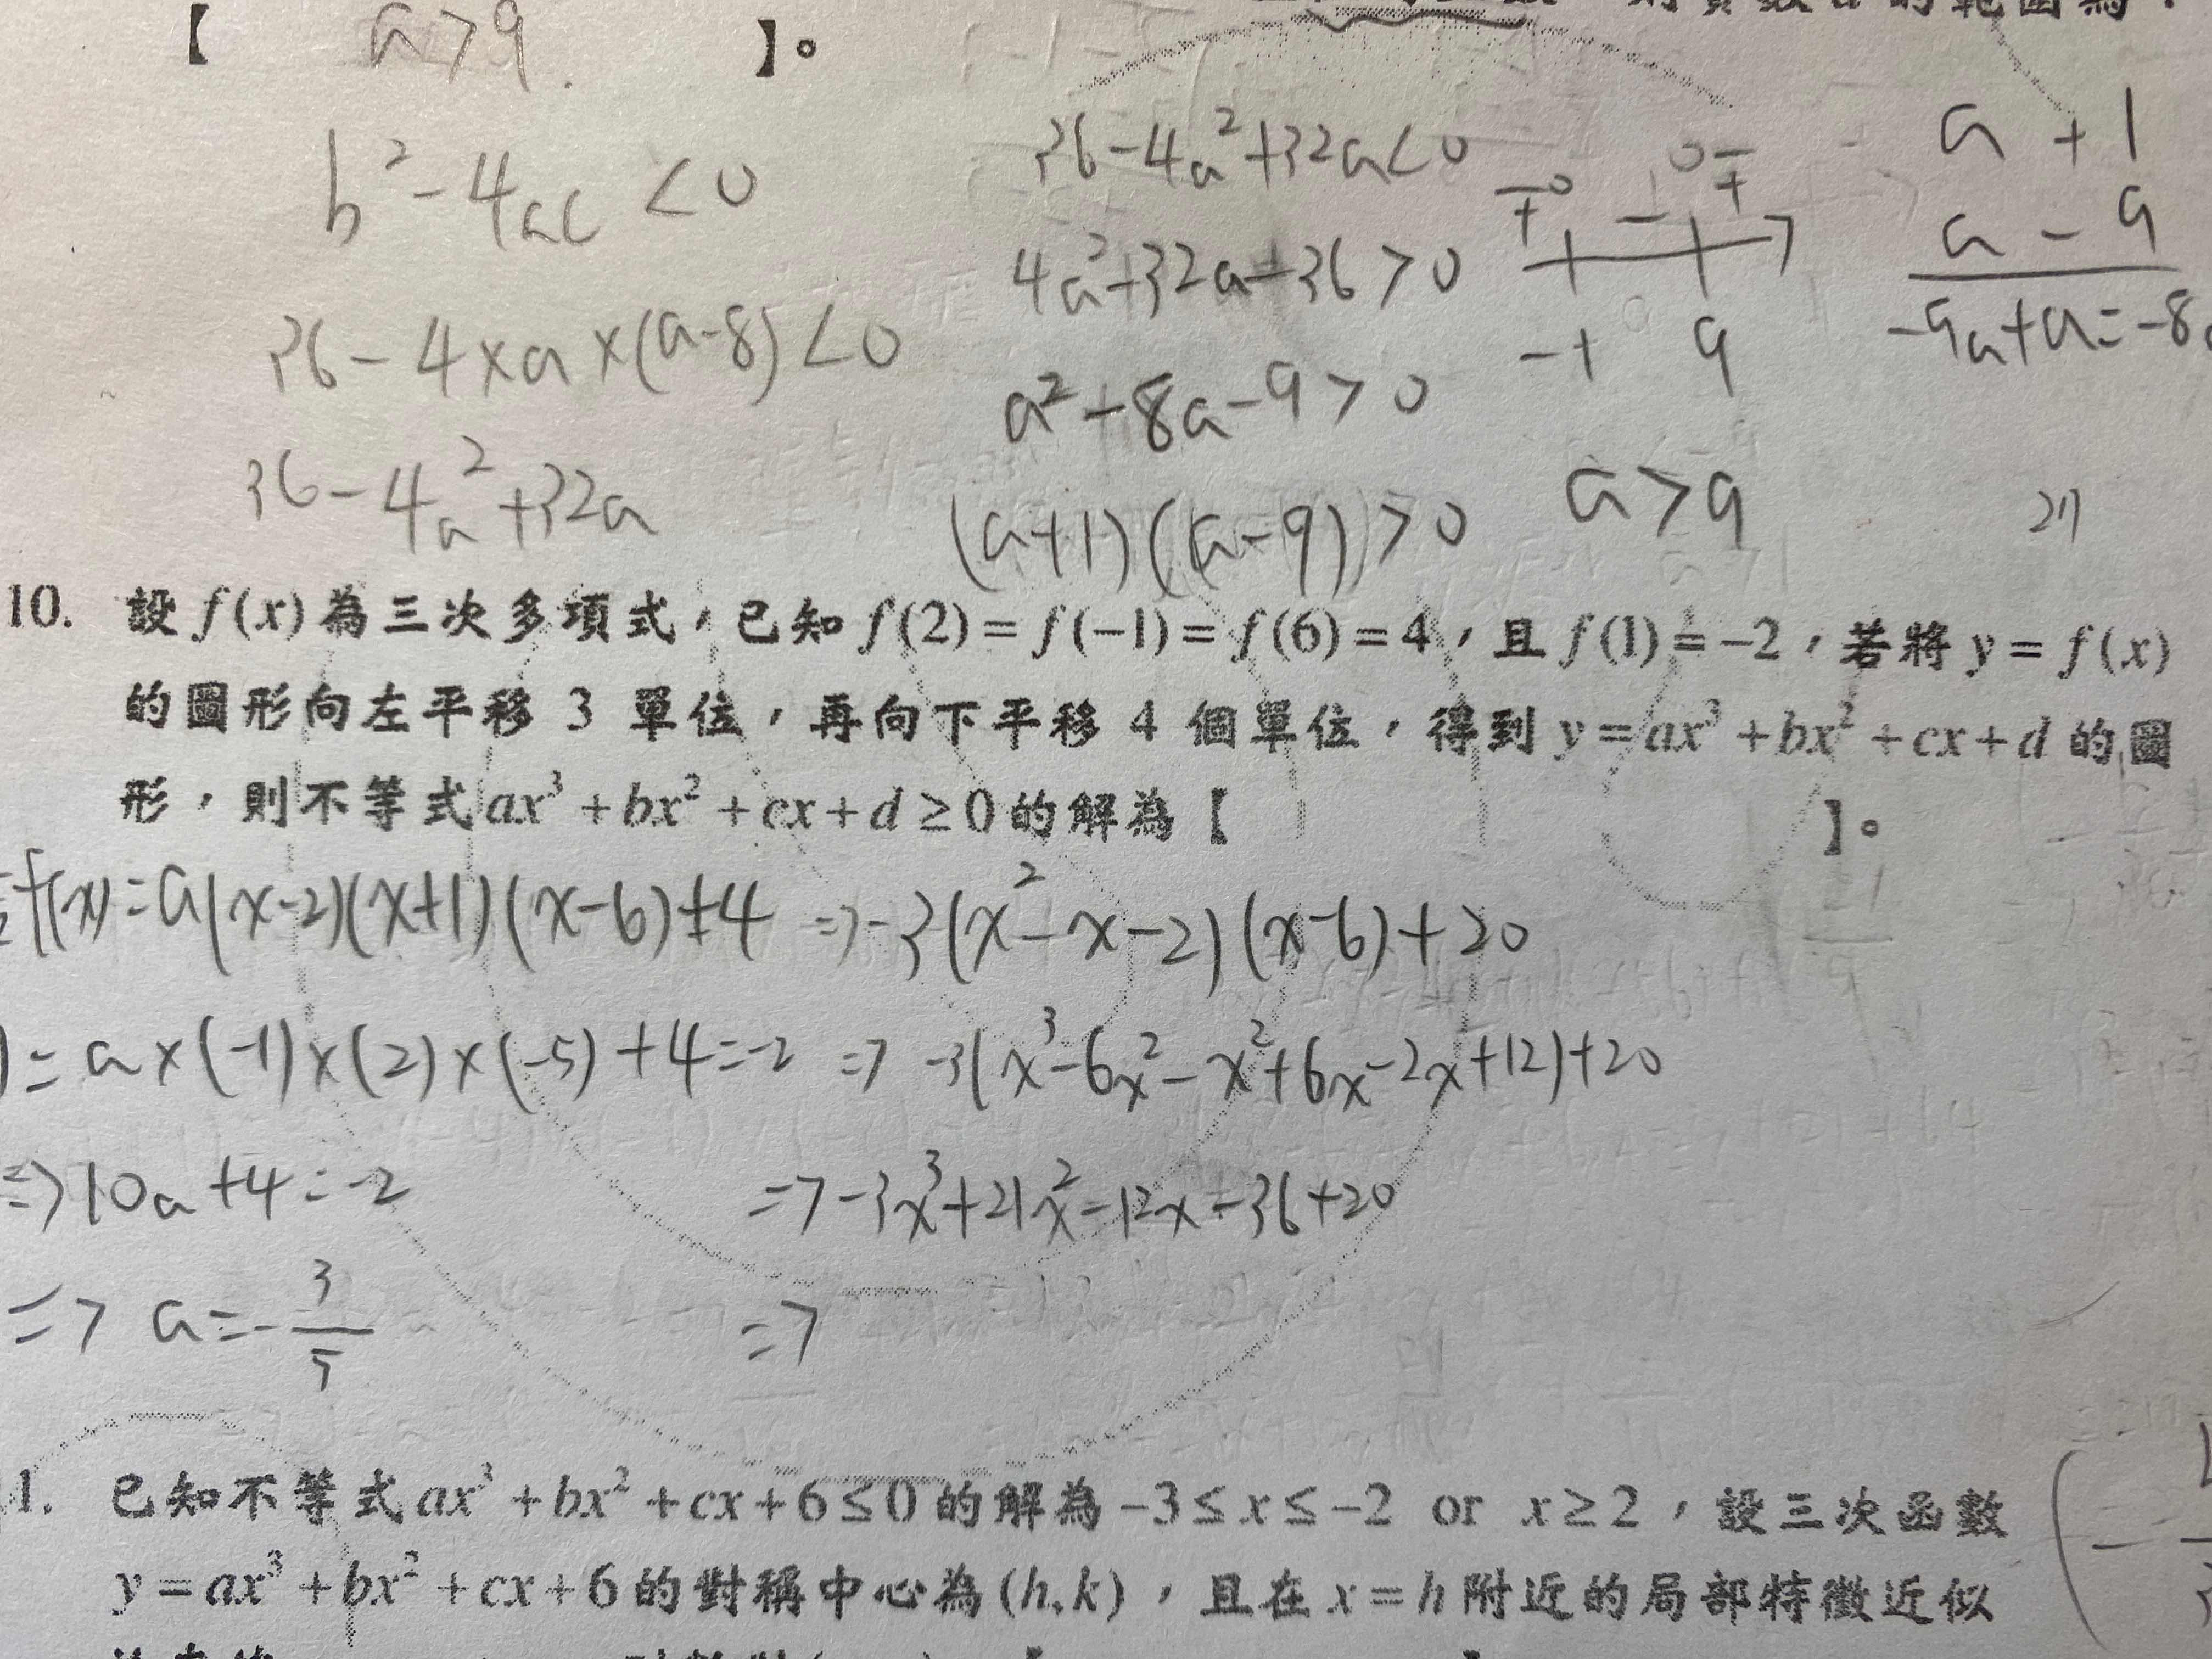 【 a>9. 】。
b²-4ac<0
36-4×a×(a-8)<0
36-4a²+32a
36-4a²+32a<0
4a²-32a-36>0
a²-8a-9>0
(a+1)(a-9)>0
-1 9
a>9
a +1
a -9
-9a+a=-8a
10. 設 f(x) 為三次多項式，已知 f(2)=f(-1)=f(6)=4，且 f(1)=-2，若將 y=f(x)
的圖形向左平移 3 單位，再向下平移 4 個單位，得到 y=ax³+bx²+cx+d 的圖
形，則不等式 ax³+bx²+cx+d≥0 的解為【 】。
f(x)=a(x-2)(x+1)(x-6)+4
=a×(-1)×(2)×(-5)+4=-2
=>10a+4=-2
=> a=-3/5
=>-3(x²-x-2)(x-6)+20
=> -3(x³-6x²-x²+6x-2x+12)+20
=>-3x³+21x²-12x-36+20
=>
1. 已知不等式 ax³+bx²+cx+6≤0 的解為 -3≤x≤-2 or x≥2，設三次函數
y=ax³+bx²+cx+6 的對稱中心為 (h,k)，且在 x=h 附近的局部特徵近似